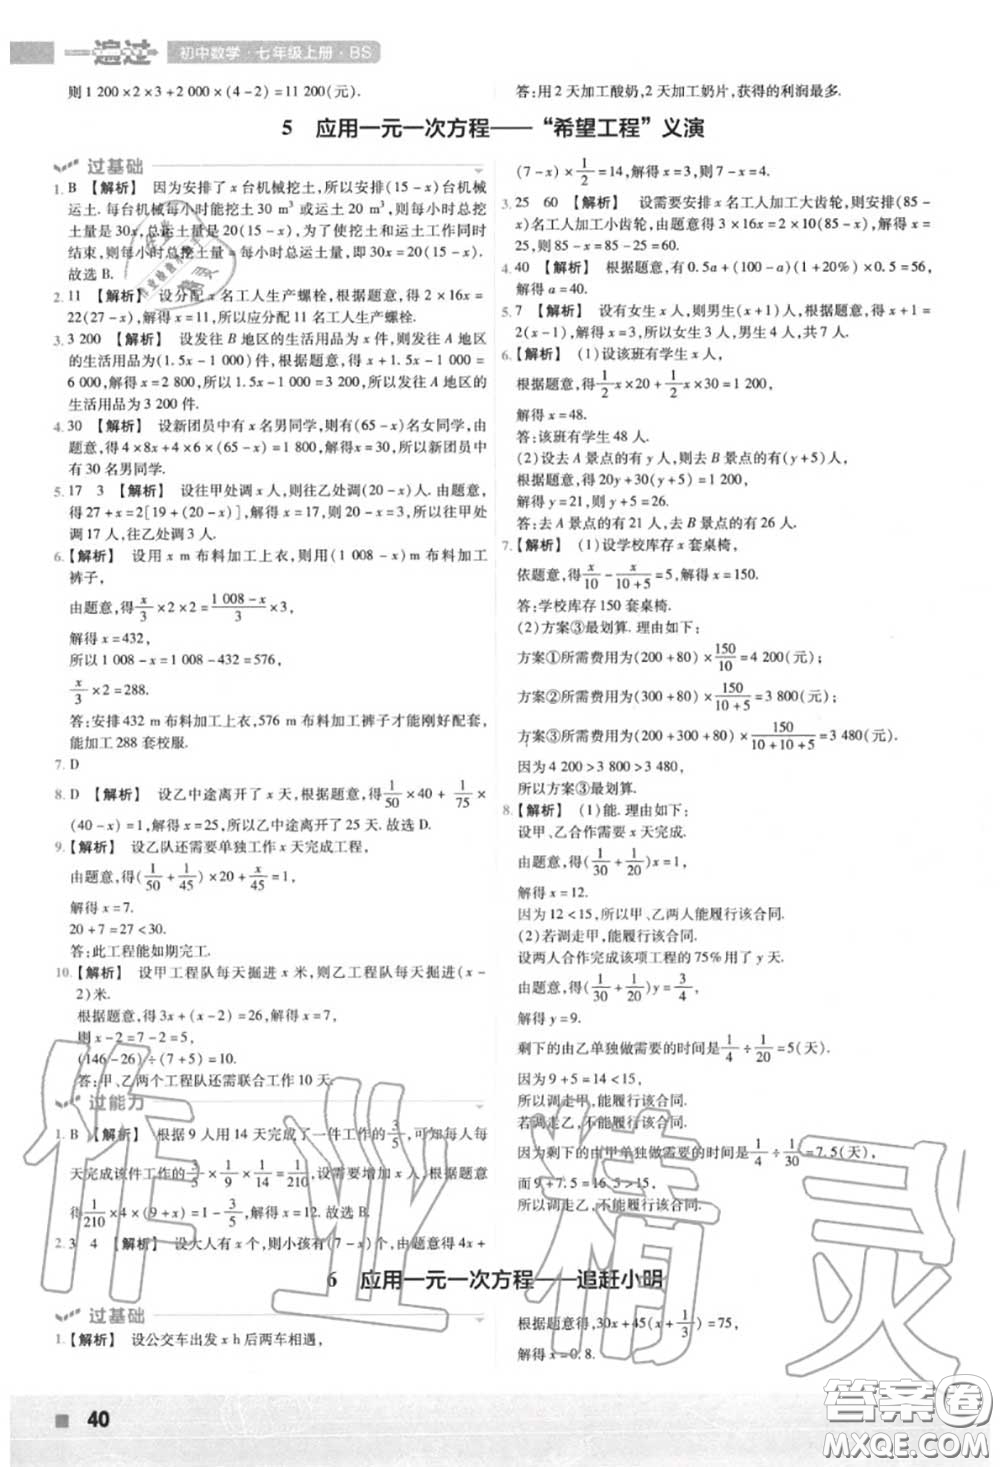 一遍过 初中数学·七年级上册·BS
则1 200×2×3+2 000×(4-2)=11 200(元).
答:用2天加工酸奶,2天加工奶片,获得的利润最多.
5 应用一元一次方程——“希望工程”义演
过基础
1. B 【解析】 因为安排了x台机械挖土,所以安排(15-x)台机械
运土.每台机械每小时能挖土30 m³或运土20 m³,则每小时总挖
土量是30x,总运土量是20(15-x),为了使挖土和运土工作同时
结束,则每小时总挖土量=每小时总运土量,即30x=20(15-x).
故选B.
2. 11 【解析】 设分配x名工人生产螺栓,根据题意,得2×16x=
22(27-x),解得x=11,所以应分配11名工人生产螺栓.
3. 3 200 【解析】 设发往B地区的生活用品为x件,则发往A地区
的生活用品为(1.5x-1 000)件,根据题意,得x+1.5x-1 000=
6 000,解得x=2 800,所以1.5x-1 000=3 200,所以发往A地区的
生活用品为3 200件.
4. 30 【解析】 设新团员中有x名男同学,则有(65-x)名女同学,由
题意,得4×8x+4×6×(65-x)=1 800,解得x=30,所以新团员中
有30名男同学.
5. 17 3 【解析】 设往甲处调x人,则往乙处调(20-x)人.由题意,
得27+x=2[19+(20-x)],解得x=17,则20-x=3,所以往甲处
调17人,往乙处调3人.
6. 【解析】 设用x m布料加工上衣,则用(1 008-x) m布料加工
裤子,
由题意,得x/3×2×2=(1 008-x)/3×3,
解得x=432,
所以1 008-x=1 008-432=576,
x/3×2=288.
答:安排432 m布料加工上衣,576 m布料加工裤子才能刚好配套,
能加工288套校服.
7. D
8. D 【解析】 设乙中途离开了x天,根据题意,得1/50×40+1/75×
(40-x)=1,解得x=25,所以乙中途离开了25天.故选D.
9. 【解析】 设乙队还需要单独工作x天完成工程,
由题意,得(1/50+1/45)×20+x/45=1,
解得x=7.
20+7=27<30.
答:此工程能如期完工.
10. 【解析】 设甲工程队每天掘进x米,则乙工程队每天掘进(x-
2)米.
根据题意,得3x+(x-2)=26,解得x=7,
则x-2=7-2=5,
(146-26)÷(7+5)=10.
答:甲、乙两个工程队还需联合工作10天.
过能力
1. B 【解析】 根据9人用14天完成了一件工作的3/5,可知每人每
天完成该件工作的3/5×1/9×1/14=1/210.设需要增加x人,根据题意
得1/210×4×(9+x)=1-3/5,解得x=12.故选B.
2. 3 4 【解析】 设大人有x个,则小孩有(7-x)个,根据题意,得4x+
(7-x)×1/2=14,解得x=3,则7-x=4.
3. 25 60 【解析】 设需要安排x名工人加工大齿轮,则安排(85-
x)名工人加工小齿轮,由题意得3×16x=2×10(85-x),解得x=
25,则85-x=85-25=60.
4. 40 【解析】 根据题意,有0.5a+(100-a)(1+20%)×0.5=56,
解得a=40.
5. 7 【解析】 设有女生x人,则男生(x+1)人,根据题意,得x+1=
2(x-1),解得x=3,所以女生3人,男生4人,共7人.
6. 【解析】 (1)设该班有学生x人,
根据题意,得1/2x×20+1/2x×30=1 200,
解得x=48.
答:该班有学生48人.
(2)设去A景点的有y人,则去B景点的有(y+5)人,
根据题意,得20y+30(y+5)=1 200,
解得y=21,则y+5=26.
答:去A景点的有21人,去B景点的有26人.
7. 【解析】 (1)设学校库存x套桌椅,
依题意,得x/10-x/(10+5)=5,解得x=150.
答:学校库存150套桌椅.
(2)方案③最划算.理由如下:
方案①所需费用为(200+80)×150/10=4 200(元);
方案②所需费用为(300+80)×150/(10+5)=3 800(元);
方案③所需费用为(200+300+80)×150/(10+10+5)=3 480(元).
因为4 200>3 800>3 480,
所以方案③最划算.
8. 【解析】 (1)能.理由如下:
设甲、乙合作需要x天完成.
由题意,得(1/30+1/20)x=1,
解得x=12.
因为12<15,所以甲、乙两人能履行该合同.
(2)若调走甲,能履行该合同.
设两人合作完成该项工程的75%用了y天.
由题意,得(1/30+1/20)y=3/4,
解得y=9.
剩下的由乙单独做需要的时间是1/4÷1/20=5(天),
因为9+5=14<15,
所以调走甲,能履行该合同.
若调走乙,不能履行该合同.
因为剩下的由甲单独做需要的时间是1/4÷1/30=7.5(天),
而9+7.5=16.5>15,
所以调走乙,不能履行该合同.
6 应用一元一次方程——追赶小明
过基础
1. 【解析】 设公交车出发x h后两车相遇,
根据题意得,30x+45(x+1/3)=75,
解得x=0.8.
40
作业精灵
答案圈
MXQE.COM